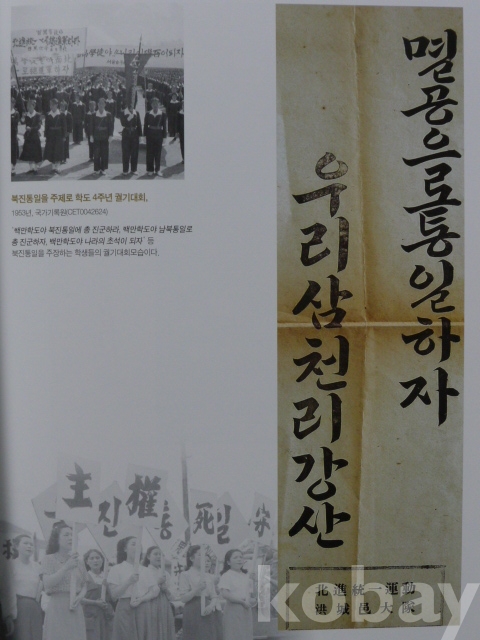 북진통일을 주제로 학도 4주년 궐기대회,
1953년, 국가기록원(CET0042624)
'백만학도야 북진통일에 총 진군하라, 백만학도야 남북통일로
총 진군하자, 백만학도야 나라의 초석이 되자' 등
북진통일을 주장하는 학생들의 궐기대회모습이다.
멸공으로통일하자
우리삼천리강산
北進統一運動
洪城邑大隊
主
진
權
통
死
일
kobay